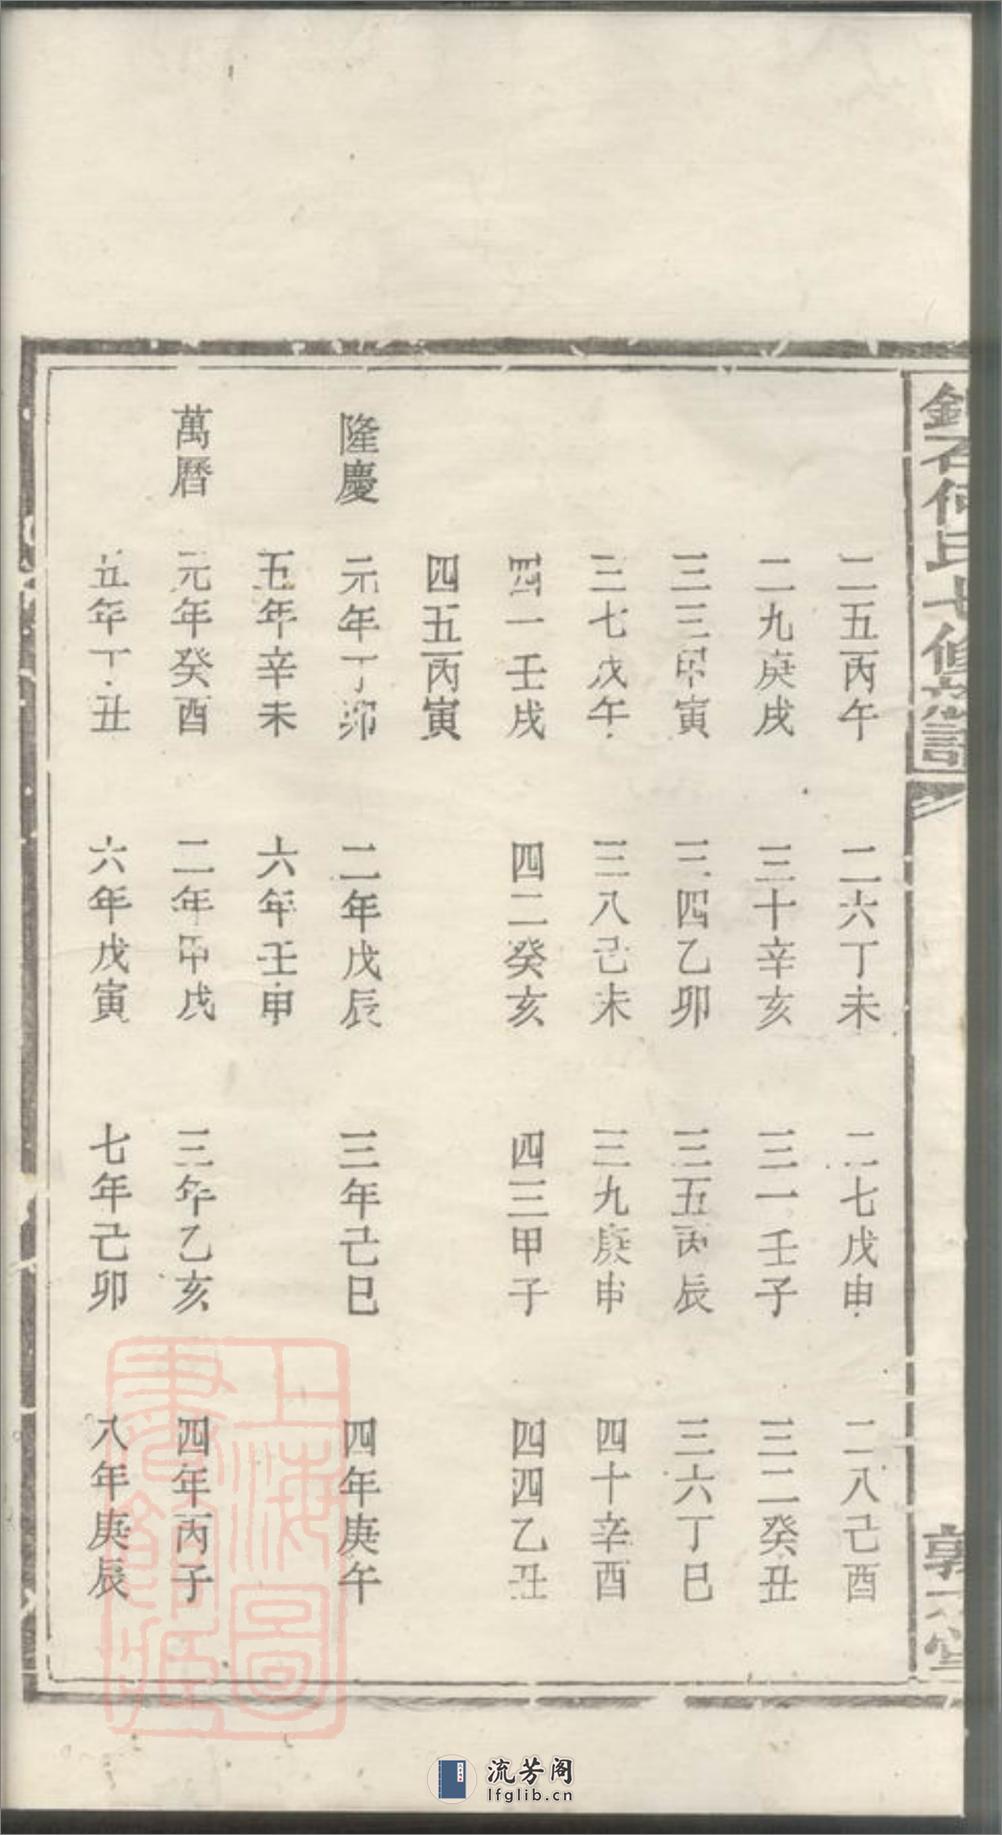 石何氏七修族譜
二五丙午 二六丁未 二七戊申 二八己酉
二九庚戌 三十辛亥 三一壬子 三二癸丑
三三甲寅 三四乙卯 三五丙辰 三六丁巳
三七戊午 三八己未 三九庚申 四十辛酉
四一壬戌 四二癸亥 四三甲子 四四乙丑
四五丙寅
隆慶 元年丁卯 二年戊辰 三年己巳 四年庚午
五年辛未 六年壬申
萬曆 元年癸酉 二年甲戌 三年乙亥 四年丙子
五年丁丑 六年戊寅 七年己卯 八年庚辰
上海圖
書館藏
流芳阁
lfglib.cn